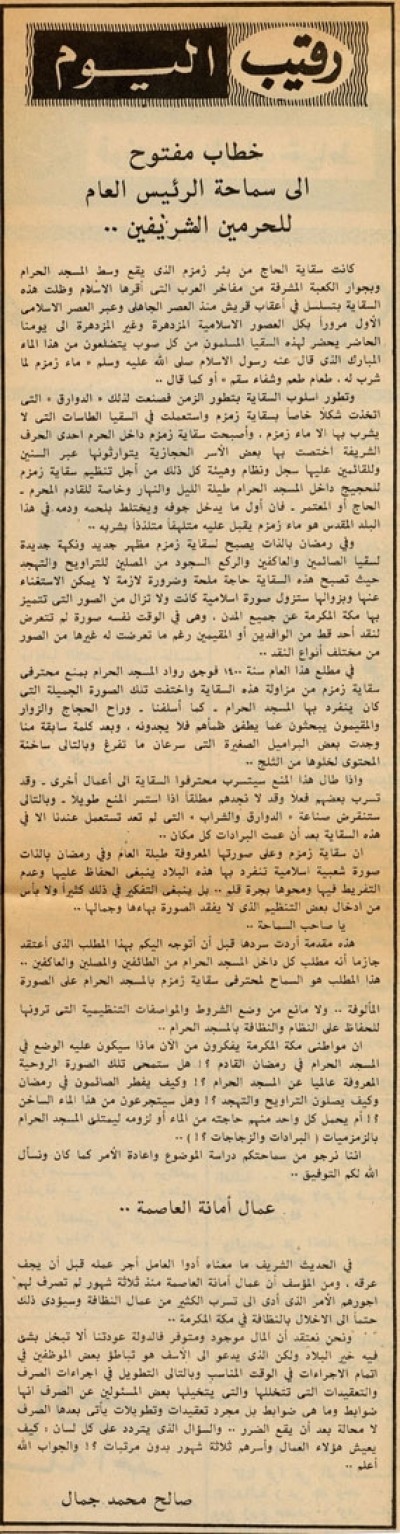 رقيب اليوم
خطاب مفتوح
الى سماحة الرئيس العام
للحرمين الشريفين ..
كانت سقاية الحاج من بئر زمزم الذى يقع وسط المسجد الحرام
وبجوار الكعبة المشرفة من مفاخر العرب التى أقرها الاسلام وظلت هذه
السقاية بتسلسل في أعقاب قريش منذ العصر الجاهلى وعبر العصر الاسلامى
الأول مروراً بكل العصور الاسلامية المزدهرة وغير المزدهرة الى يومنا
الحاضر يحضر لهذه السقيا المسلمون من كل صوب يتضلعون من هذا الماء
المبارك الذى قال عنه رسول الاسلام صلى الله عليه وسلم « ماء زمزم لما
شرب له ، طعام طعم وشفاء سقم » أو كما قال ..
وتطور اسلوب السقاية بتطور الزمن فصنعت لذلك « الدوارق » التى
اتخذت شكلاً خاصاً بسقاية زمزم واستعملت في السقيا الطاسات التى لا
يشرب بها الا ماء زمزم ، وأصبحت سقاية زمزم داخل الحرم احدى الحرف
الشريفة اختصت بها بعض الأسر الحجازية يتوارثونها عبر السنين
وللقائمين عليها سجل ونظام وهيئة كل ذلك من أجل تنظيم سقاية زمزم
للحجيج داخل المسجد الحرام طيلة الليل والنهار وخاصة للقادم المحرم ـ
الحاج أو المعتمر ـ فان أول ما يدخل جوفه ويختلط بلحمه ودمه في هذا
البلد المقدس هو ماء زمزم يقبل عليه متلهفاً متلذذاً بشربه ..
وفي رمضان بالذات يصبح لسقاية زمزم مظهر جديد ونكهة جديدة
لسقيا الصائمين والعاكفين والركع السجود من المصلين للتراويح والتهجد
حيث تصبح هذه السقاية حاجة ملحة وضرورة لازمة لا يمكن الاستغناء
عنها وبزوالها ستزول صورة اسلامية كانت ولا تزال من الصور التى تتميز
بها مكة المكرمة عن جميع المدن ، وهى في الوقت نفسه صورة لم تتعرض
لنقد أحد قط من الوافدين أو المقيمين رغم ما تعرضت له غيرها من الصور
من مختلف أنواع النقد ..
في مطلع هذا العام سنة ١٤٠٠ فوجئ رواد المسجد الحرام بمنع محترفى
سقاية زمزم من مزاولة هذه السقاية واختفت تلك الصورة الجميلة التى
كان ينفرد بها المسجد الحرام ـ كما أسلفنا ـ وراح الحجاج والزوار
والمقيمون يبحثون عما يطفئ ظمأهم فلا يجدونه ، وبعد كلمة سابقة منا
وجدت بعض البراميل الصغيرة التى سرعان ما تفرغ وبالتالى ساخنة
المحتوى لخلوها من الثلج ..
واذا طال هذا المنع سيتسرب محترفوا السقاية الى أعمال أخرى ـ وقد
تسرب بعضهم فعلاً وقد لا نجدهم مطلقاً اذا استمر المنع طويلاً ـ وبالتالى
ستنقرض صناعة « الدوارق والشراب » التى لم تعد تستعمل عندنا الا في
هذه السقاية بعد أن عمت البرادات كل مكان ..
ان سقاية زمزم وعلى صورتها المعروفة طيلة العام وفي رمضان بالذات
صورة شعبية اسلامية تنفرد بها هذه البلاد ينبغى الحفاظ عليها وعدم
التفريط فيها ومحوها بجرة قلم .. بل ينبغى التفكير في ذلك كثيراً ولا بأس
من ادخال بعض التنظيم الذى لا يفقد الصورة بهاءها وجمالها ..
يا صاحب السماحة ..
هذه مقدمة أردت سردها قبل أن أتوجه اليكم بهذا المطلب الذى أعتقد
جازما أنه مطلب كل داخل المسجد الحرام من الطائفين والمصلين والعاكفين ..
هذا المطلب هو السماح لمحترفى سقاية زمزم بالمسجد الحرام على الصورة
المألوفة .. ولا مانع من وضع الشروط والمواصفات التنظيمية التى ترونها
للحفاظ على النظام والنظافة بالمسجد الحرام ..
ان مواطنى مكة المكرمة يفكرون من الآن ماذا سيكون عليه الوضع في
المسجد الحرام في رمضان القادم ؟! هل ستمحى تلك الصورة الروحية
المعروفة عالميا عن المسجد الحرام ؟! وكيف يفطر الصائمون في رمضان
وكيف يصلون التراويح والتهجد ؟! وهل سيتجرعون من هذا الماء الساخن
؟! أم يحمل كل واحد منهم حاجته من الماء أو لزومه ليمتلئ المسجد الحرام
بالزمزميات ( البرادات والزجاجات ؟! ) ..
اننا نرجو من سماحتكم دراسة الموضوع واعادة الأمر كما كان ونسأل
الله لكم التوفيق ..
عمال أمانة العاصمة ..
في الحديث الشريف ما معناه أدوا العامل أجر عمله قبل أن يجف
عرقه ، ومن المؤسف أن عمال أمانة العاصمة منذ ثلاثة شهور لم تصرف لهم
اجورهم الأمر الذى أدى الى تسرب الكثير من عمال النظافة وسيؤدى ذلك
حتماً الى الاخلال بالنظافة في مكة المكرمة ..
ونحن نعتقد أن المال موجود ومتوفر فالدولة عودتنا ألا تبخل بشئ
فيه خير البلاد ولكن الذى يدعو الى الأسف هو تباطؤ بعض الموظفين في
اتمام الاجراءات في الوقت المناسب وبالتالى التطويل في اجراءات الصرف
والتعقيدات التى تتخللها والتى يتخيلها بعض المسئولين عن الصرف انها
ضوابط وما هى ضوابط بل مجرد تعقيدات وتطويلات يأتى بعدها الصرف
لا محالة بعد أن يقع الضرر .. والسؤال الذى يتردد على كل لسان : كيف
يعيش هؤلاء العمال وأسرهم ثلاثة شهور بدون مرتبات ؟! والجواب الله
أعلم ..
صالح محمد جمال